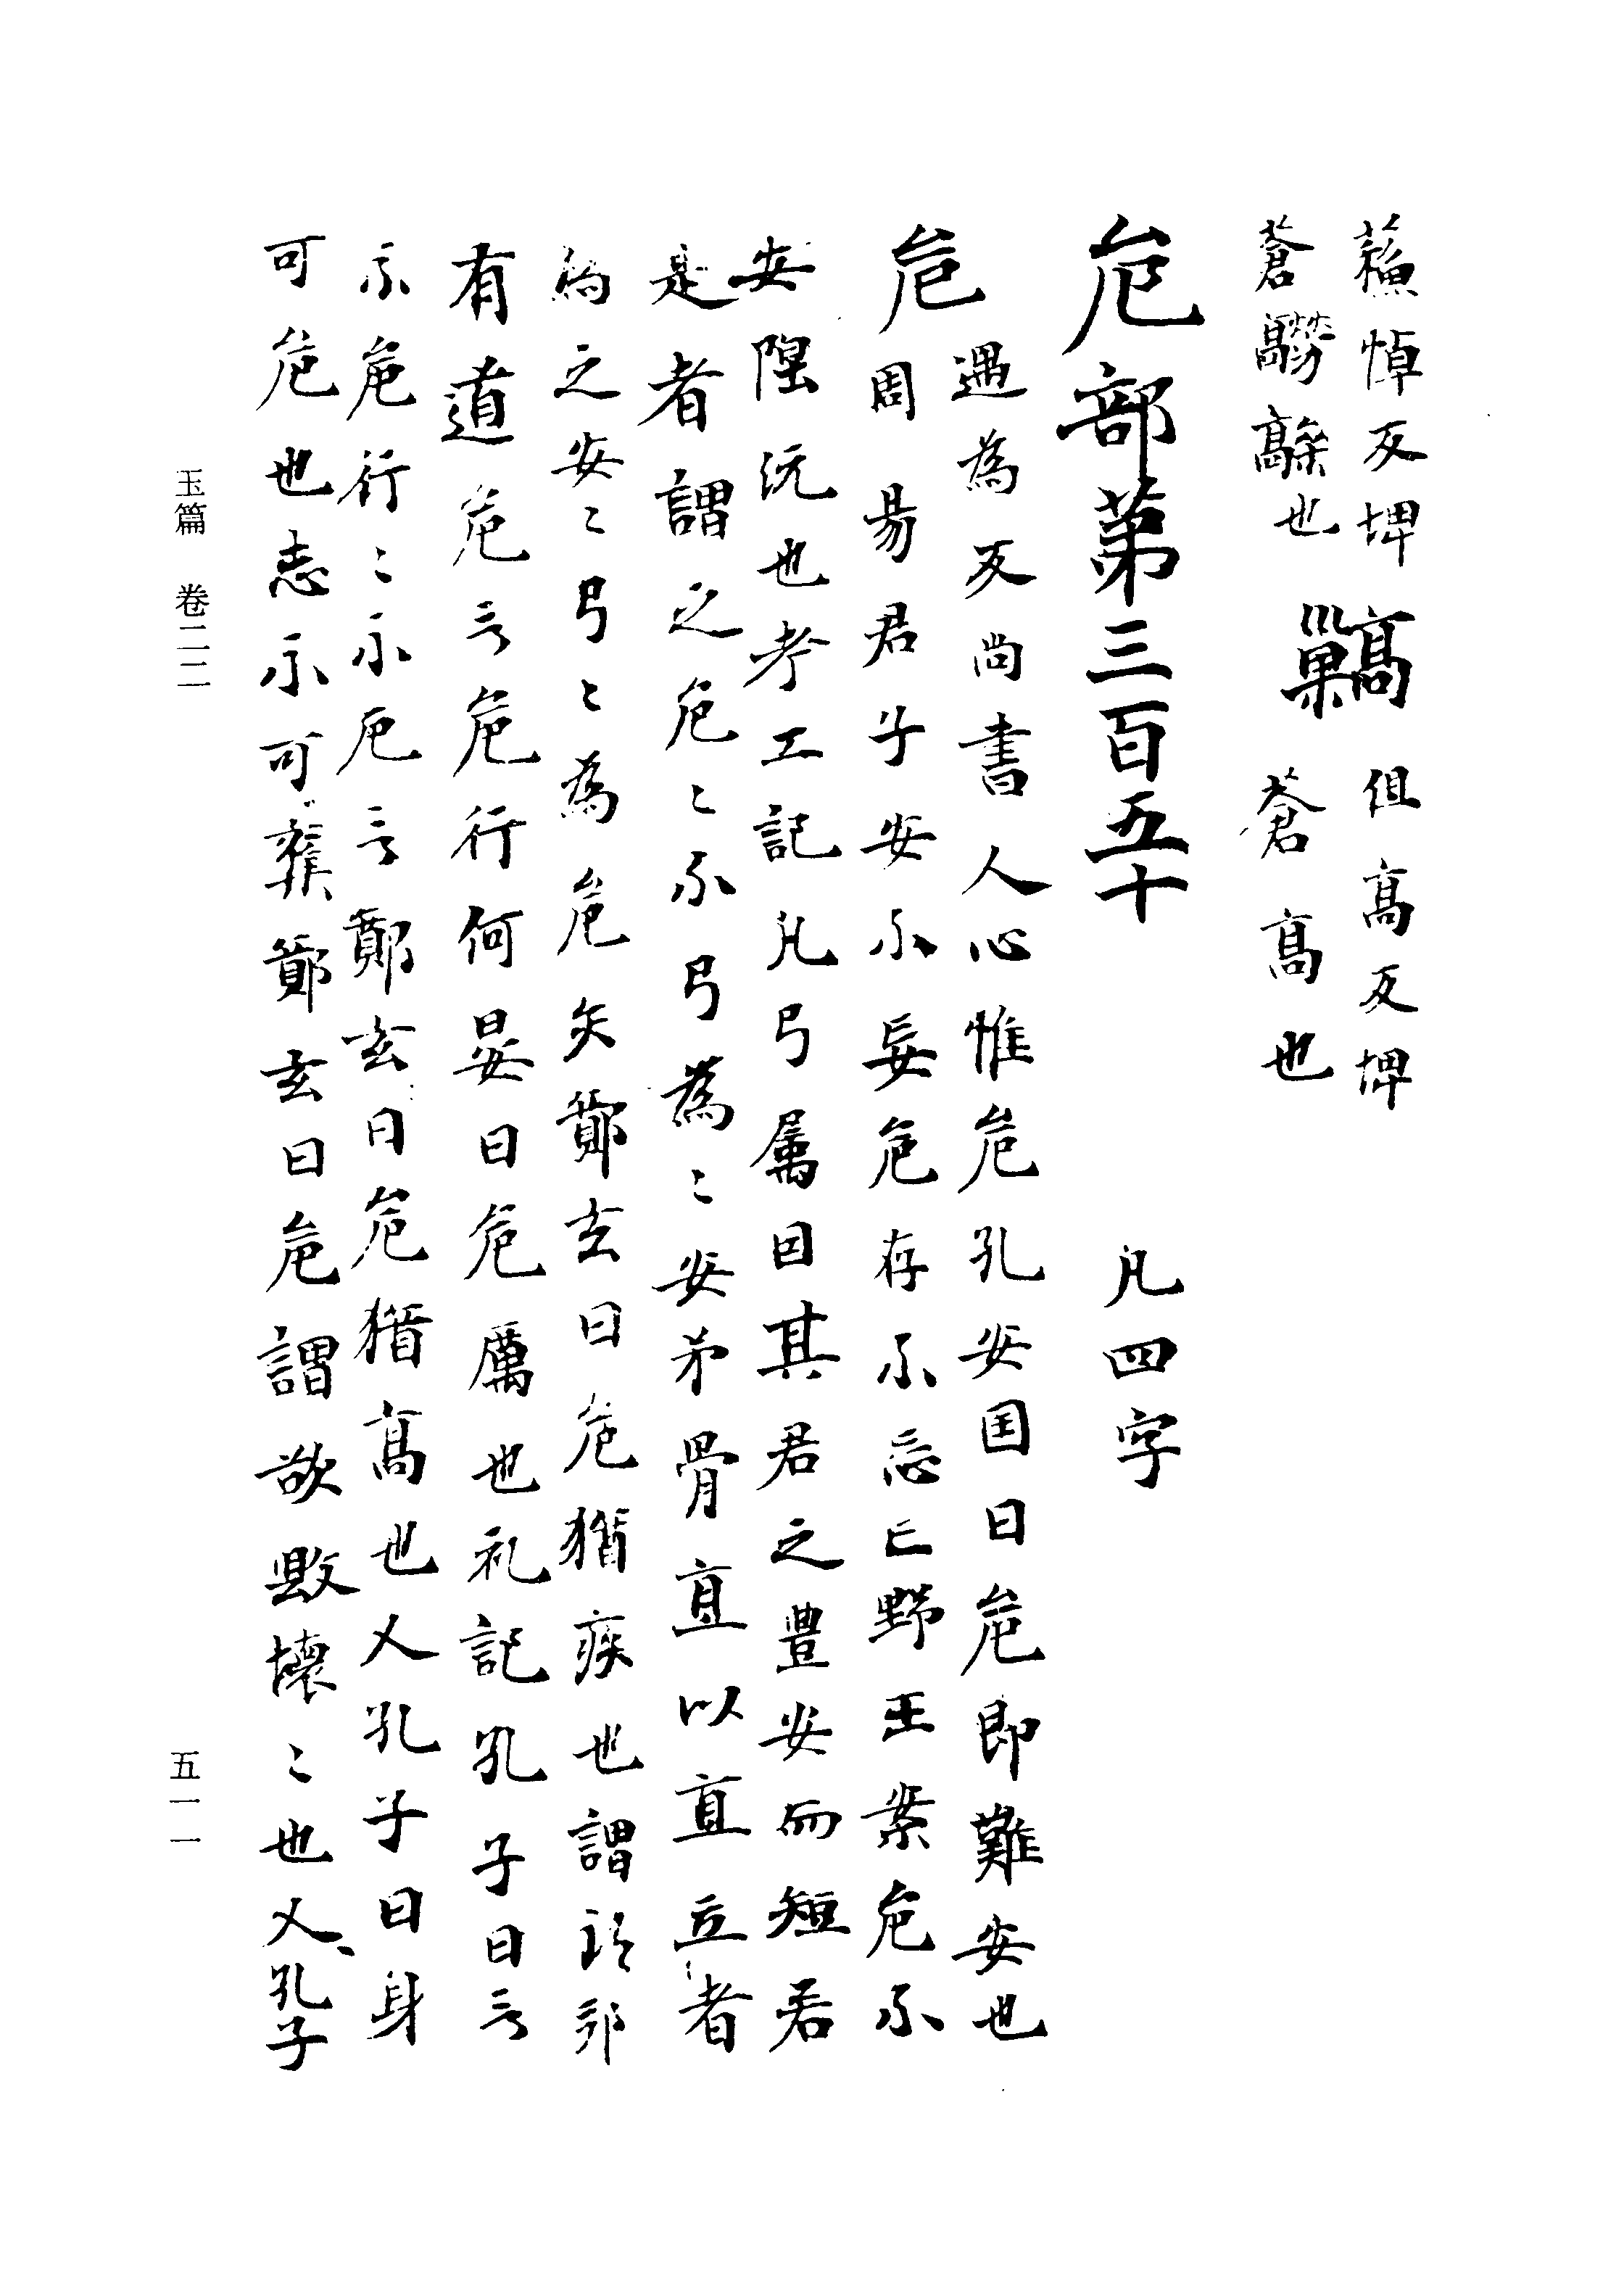 蘓悼反埤
蒼髝髞也
髜 伹髙反埤
蒼髙也
危部第三百五十 凢四字
危 遇為反尚書人心惟危孔安国曰危即難安也
周易君子安不妄危存不忘亡野王案危不
安隉阢也考工記凢弓属曰其君之豊安而短若
是者謂之危〻不弓為〻安矛骨直以直立者
為之安〻弓〻為危矢鄭玄曰危猶疾也謂
有道危言危行何晏曰危厲也礼記孔子曰言
不危行〻不危言鄭玄曰危猶髙也又孔子曰身
可危也志不可奪鄭玄曰危謂欲毀壞〻也又孔子
玉篇 卷二二
五一一